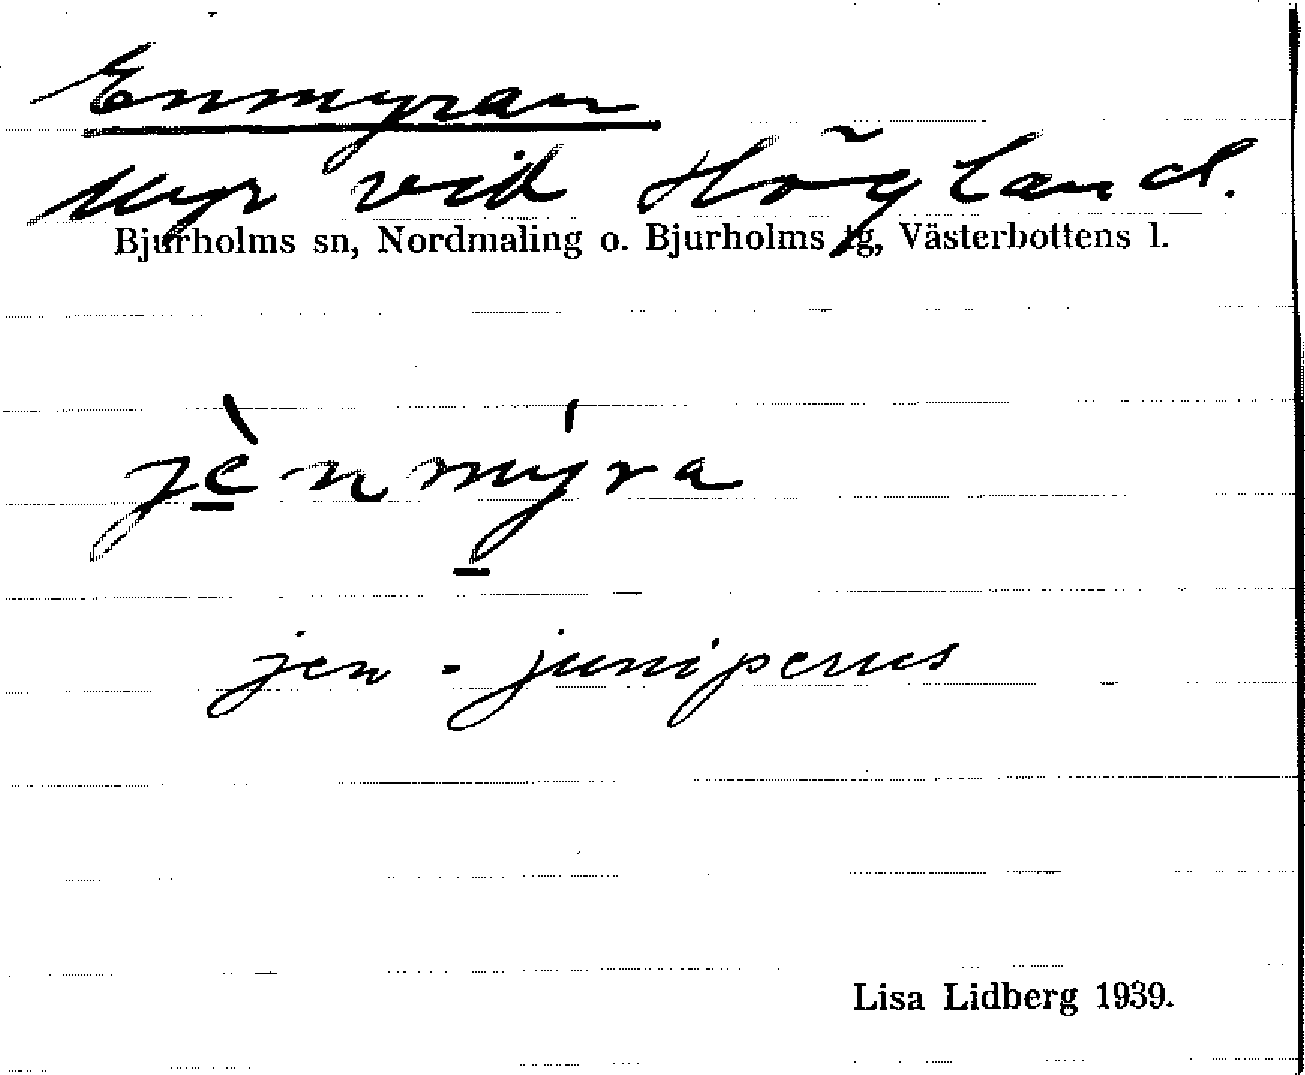 Enmyran
Myr vid Högland.
Bjurholms sn, Nordmaling o. Bjurholms tg, Västerbottens l.
jè̱nmý̱ra
jen - juniperus
Lisa Lidberg 1939.